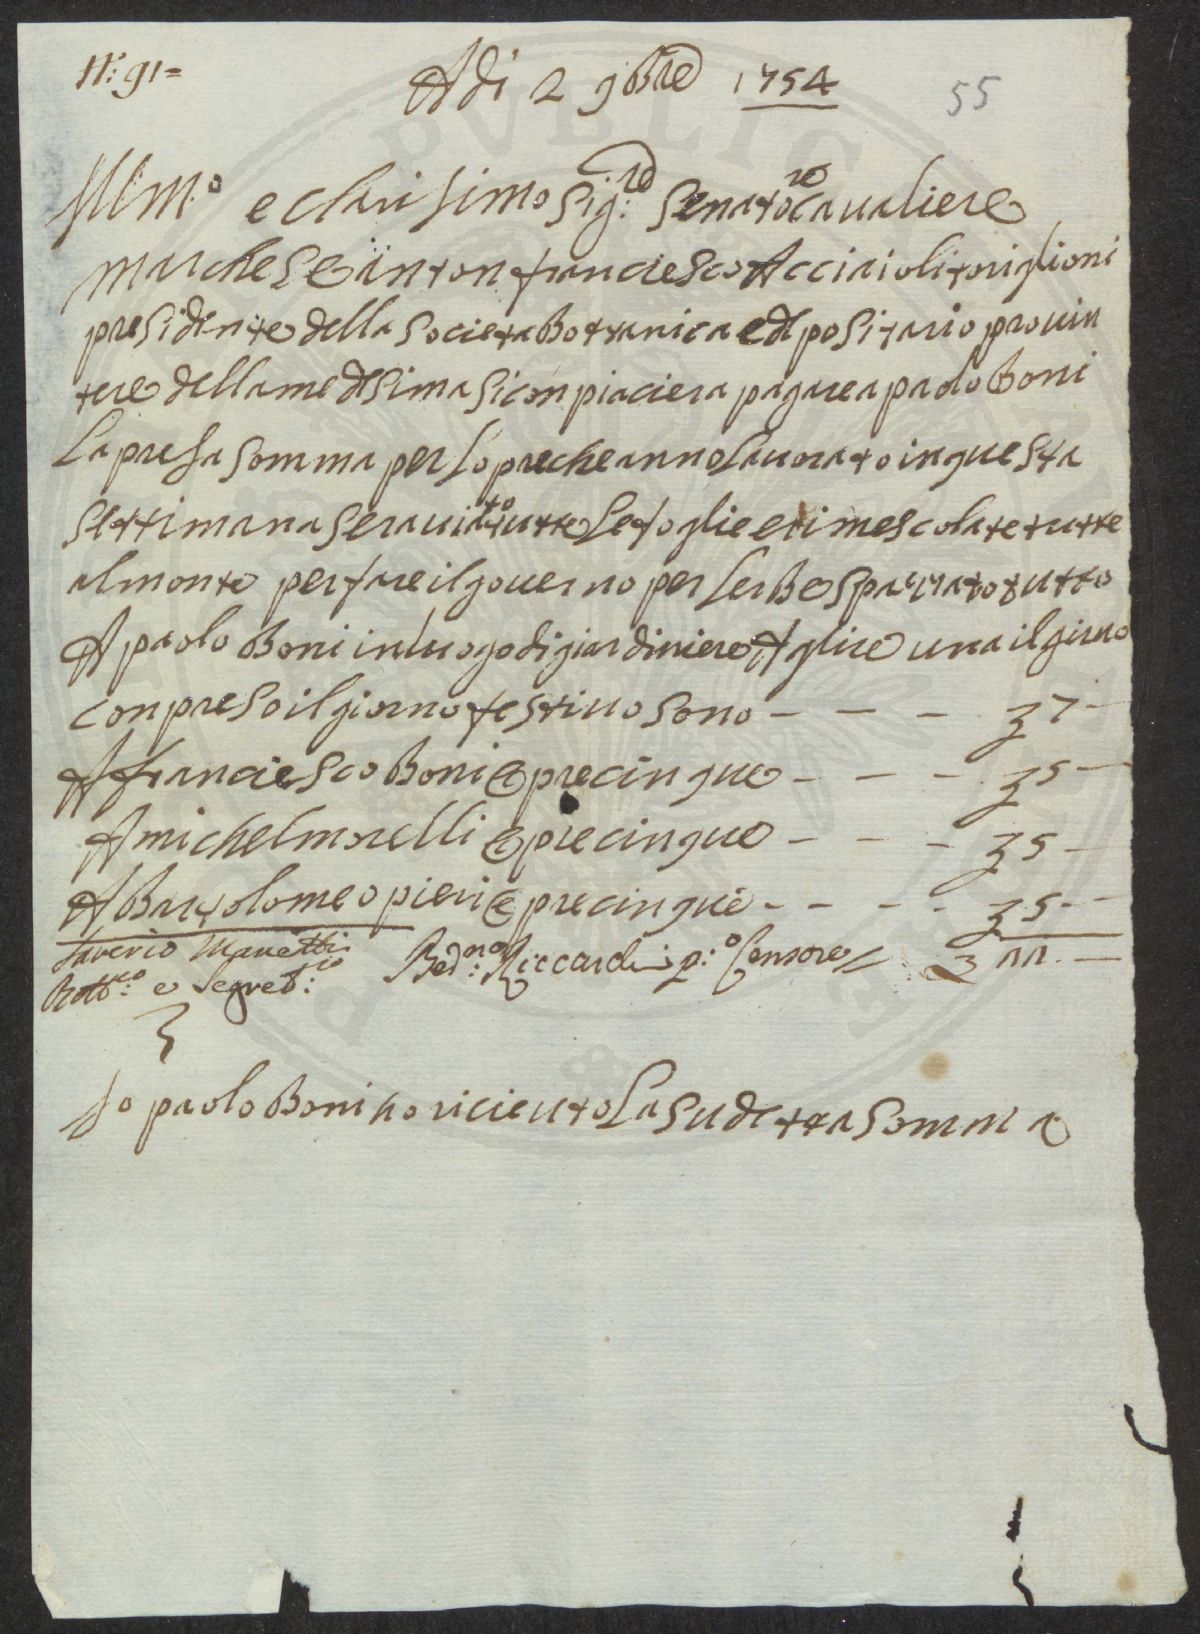 N:° 91=
Adi 2 9bre 1754
55
Illm:° e clarisimo Sig:re Senatore Caualiere
marchese Anton franciesco Acciaioli toriglioni
presidente della Societa Botranica e depositario prouin
tere della medesima si conpiaciera pagare a paolo Boni
La presa somma per Lopre che anno Lauorato in questa
settimana se rauiato tutte Le foglie e rimescolate tutte
al monte per fare il gouerno per Lerbe spaciato tutto
A paolo Boni in luogo di giardiniere A glire una il giorno
conpreso il giorno festiuo sono - - - 7 -
A franciesco Boni opre cinque - - - 5 -
A michel morelli opre cinque - - - 5 -
A Bartolomeo pieri opre cinque - - - - 5 - -
Saverio Manetti Bed:no Riccardi p:° Censore 22. -
Dott:re e Segret:rio
Io paolo Boni ho riceuto La sudetta somma